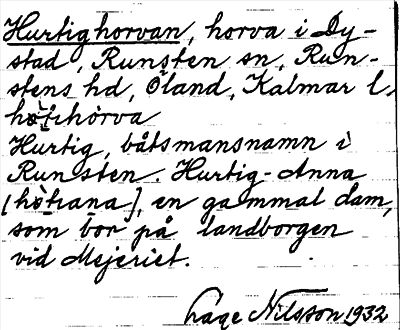 Hurtighorvan, horva i Dy-
stad, Runsten sn, Run-
stens hd, Öland, Kalmar l,
Hurtig, båtsmansnamn i
Runsten. Hurtig-Anna
en gammal dam,
som bor på landborgen
vid Mejeriet.
Åage Nilsson 1932